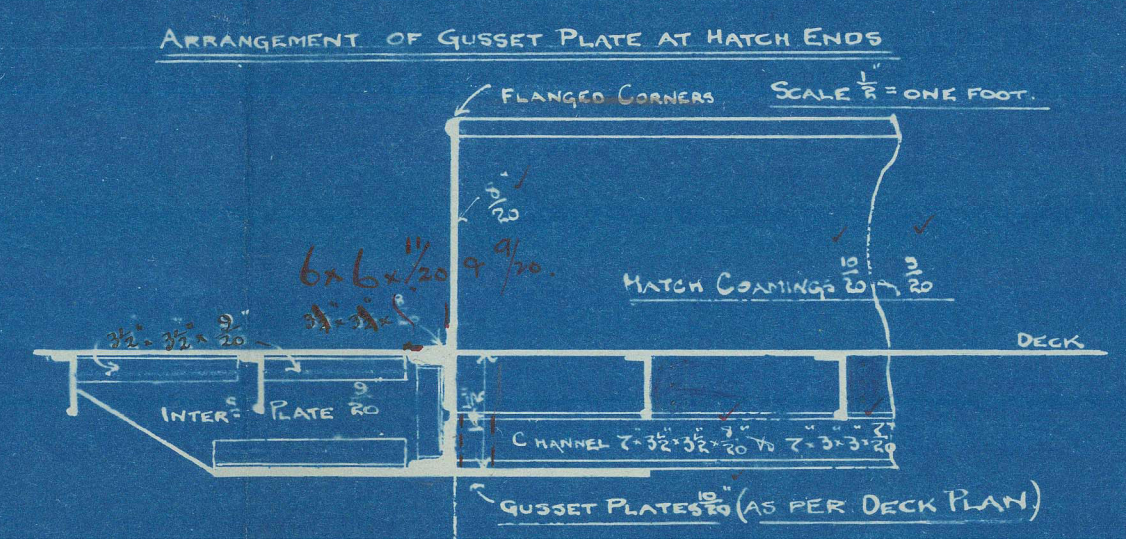 ARRANGEMENT OF GUSSET PLATE AT HATCH ENDS
FLANGED CORNERS
SCALE 1/2" = ONE FOOT.
/20"
6 x 6 x 11/20 & 9/20.
HATCH COAMINGS 10/20 9/20"
3 1/2" x 3 1/2" x 9/20"
DECK
INTER: PLATE 9/20
CHANNEL 7" x 3 1/2" x 3 1/2" x /20" 7" x 3" x 3" x /20"
GUSSET PLATES 10/20" (AS PER DECK PLAN)